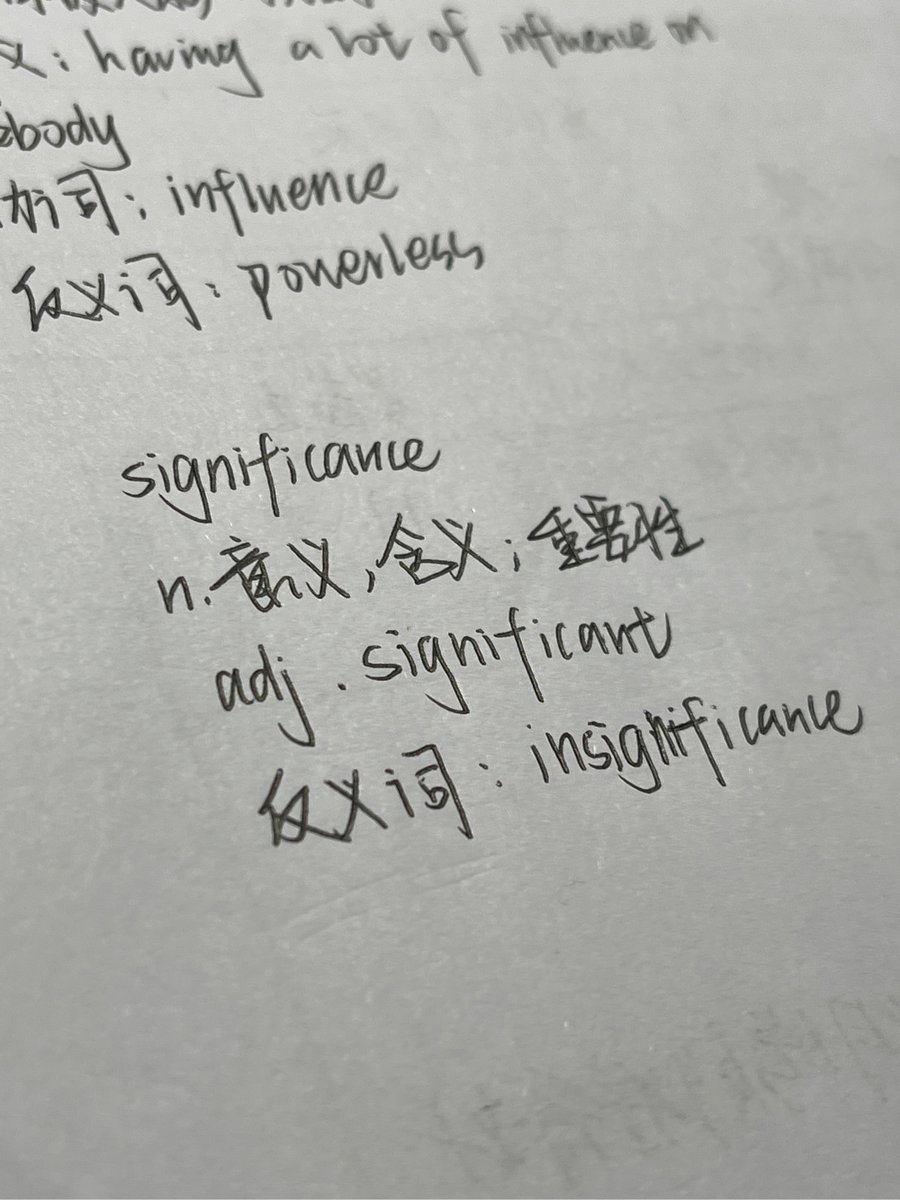 义：having a lot of influence on
body
动词：influence
反义词：powerless
significance
n. 意义，含义；重要性
adj. significant
反义词：insignificance